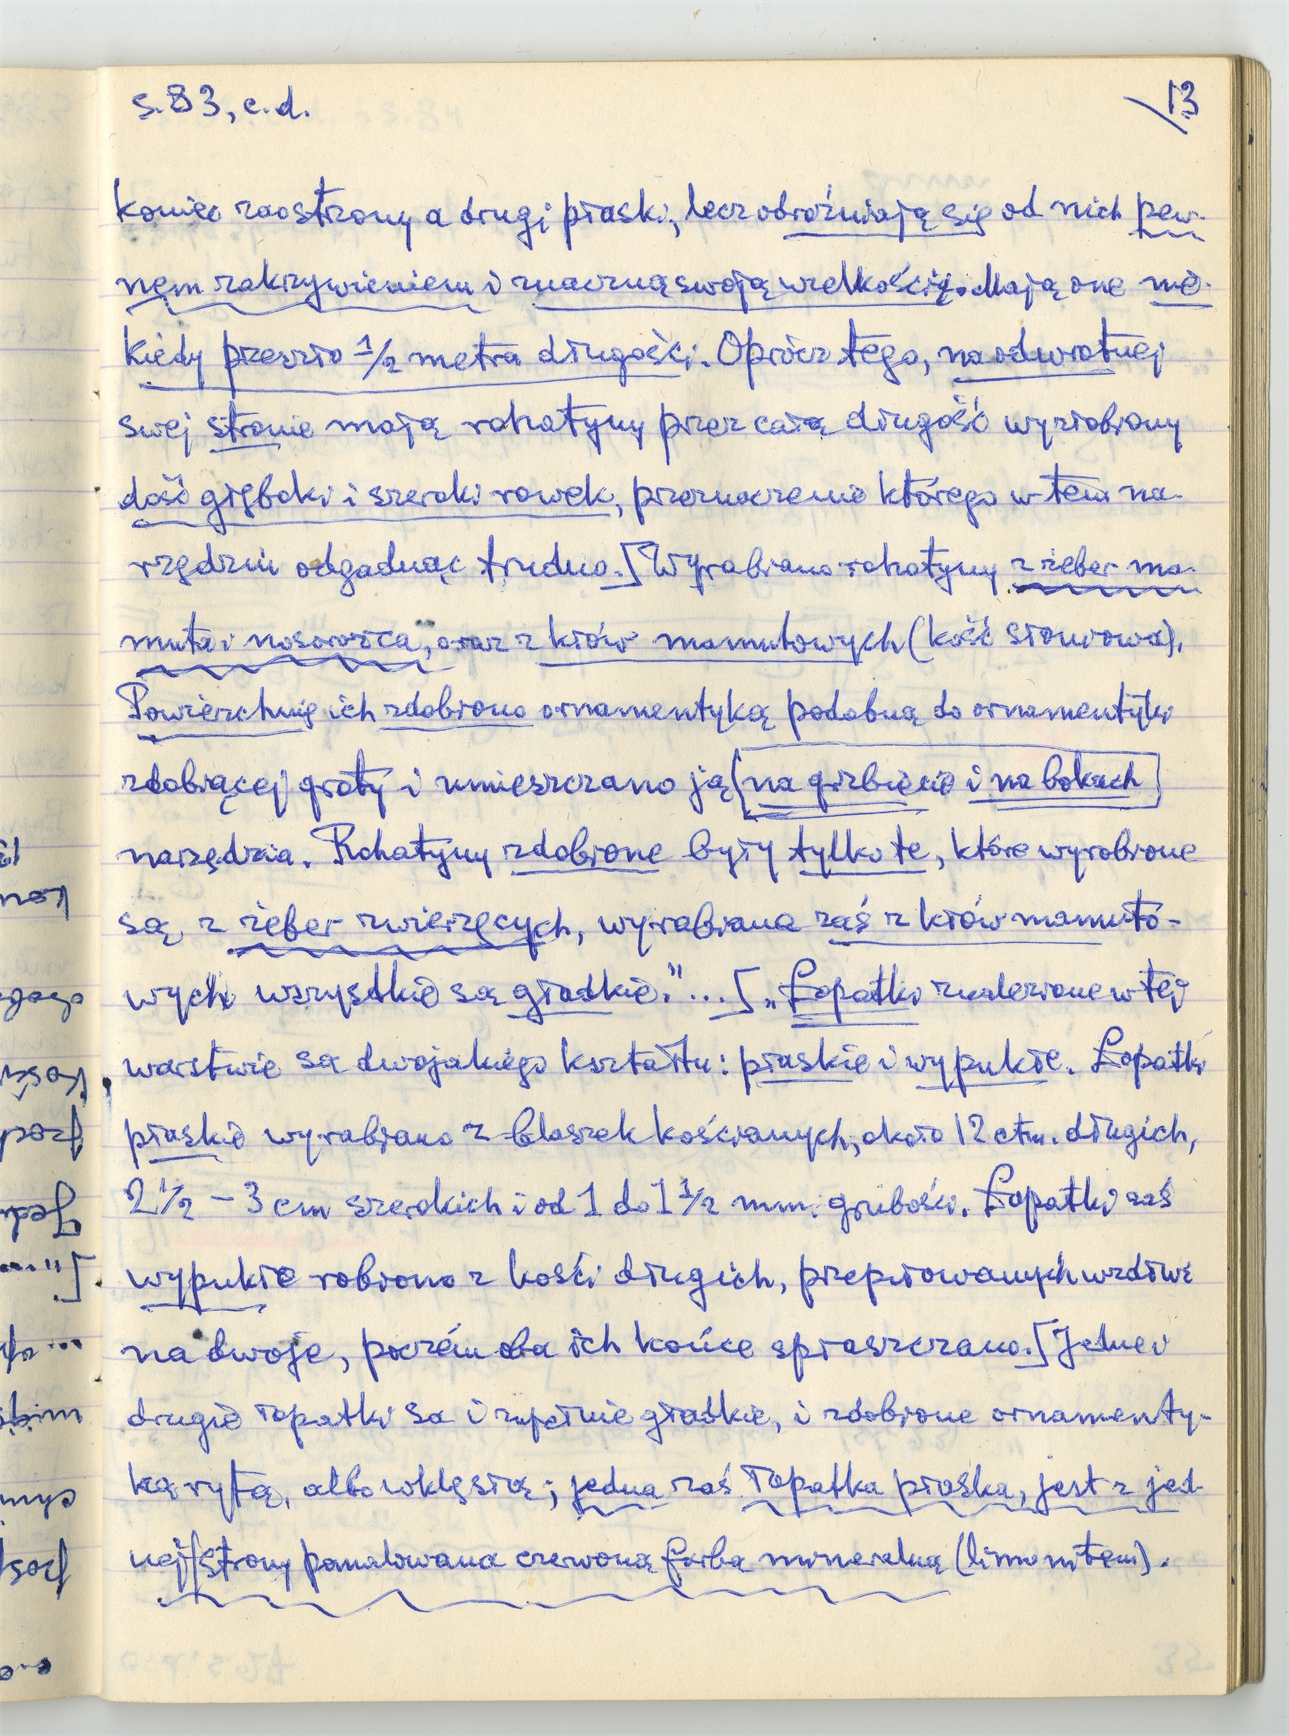 s. 83, c.d.
13
koniec zaostrzony a drugi płaski, lecz odróżniają się od nich pew-
nem zakrzywieniem i znaczną swoją wielkością. Mają one nie-
kiedy przeszło 1/2 metra długości. Oprócz tego, na odwrotnej
swej stronie mają rohatyny przez całą długość wyżłobiony
dość głęboki i szeroki rowek, przeznaczenie którego w tem na-
rzędziu odgadnąć trudno.] Wyrabiano rohatyny z żeber ma-
muta i nosorożca, oraz z kłów mamutowych (kość słoniowa).
Powierzchnię ich zdobiono ornamentyką podobną do ornamentyki
zdobiącej groty i umieszczano ją [na grzbiecie i na bokach]
narzędzia. Rohatyny zdobione były tylko te, które wyrobione
są z żeber zwierzęcych, wyrabiane zaś z kłów mamuto-
wych wszystkie są gładkie."...[„Łopatki znalezione w tej
warstwie są dwojakiego kształtu: płaskie i wypukłe. Łopatki
płaskie wyrabiano z blaszek kościanych, około 12 ctm. długich,
2 1/2 – 3 cm szerokich i od 1 do 1 1/2 mm. grubości. Łopatki zaś
wypukłe robiono z kości długich, przepiłowanych wzdłuż
na dwoje, poczém oba ich końce spłaszczano.[Jedne i
drugie łopatki są i zupełnie gładkie, i zdobione ornamenty-
ką rytą, albo wklęsłą; jedna zaś łopatka płaska, jest z jed-
nej strony pomalowana czerwoną farbą mineralną (limonitem).